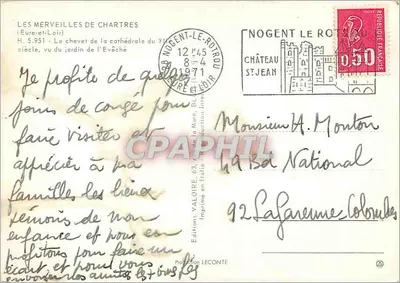 LES MERVEILLES DE CHARTRES
(Eure-et-Loir)
H. S.951 - Le chevet de la cathédrale du XIIe
siècle, vu du jardin de l'Evêché
28 NOGENT-LE-ROTROU
12 H 45
8-4
1971
EURE-ET-LOIR
NOGENT LE ROTROU
CHÂTEAU
ST JEAN
0,50
Je profite de quelques
jours de congé pour
faire visiter et
apprécier à ma
familles les lieux
témoins de mon
enfance et nous en
profitons pour faire un
écart et pour vous
envoyer nos amitiés
Monsieur H. Monton
49 Bd National
92 La Garenne Colombes
Editions VALOIRE, 63,
Imprimé en Italie
Production LECONTE
CPAPHIL